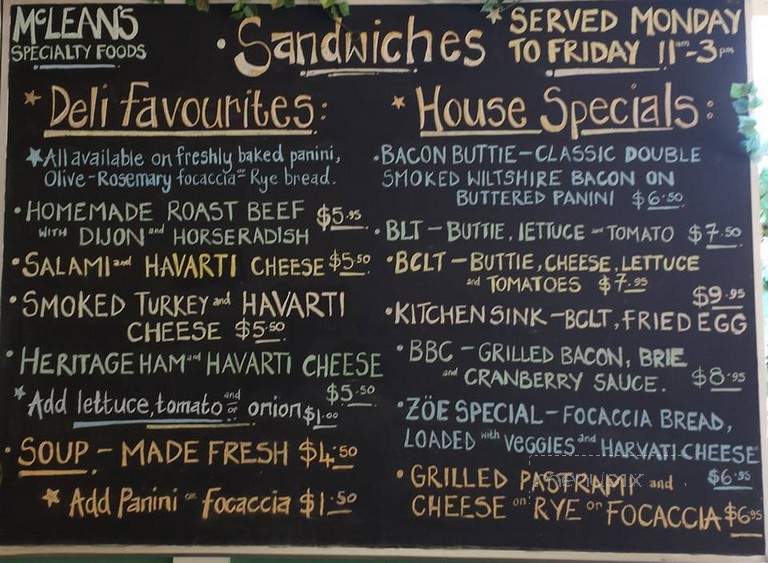 McLEAN'S
SPECIALTY FOODS
• Sandwiches
* SERVED MONDAY
TO FRIDAY 11am-3pm
* Deli favourites:
★All available on freshly baked panini,
Olive-Rosemary focaccia or Rye bread.
• HOMEMADE ROAST BEEF $5.95
WITH DIJON and HORSERADISH
• SALAMI and HAVARTI CHEESE $5.50
• SMOKED TURKEY and HAVARTI
CHEESE $5.50
• HERITAGE HAM and HAVARTI CHEESE
$5.50
* Add lettuce, tomato and or onion $1.00
• SOUP - MADE FRESH $4.50
★ Add Panini or focaccia $1.50
* House Specials:
• BACON BUTTIE - CLASSIC DOUBLE
SMOKED WILTSHIRE BACON ON
BUTTERED PANINI $6.50
• BLT - BUTTIE, LETTUCE and TOMATO $7.50
• BCLT - BUTTIE, CHEESE, LETTUCE
and TOMATOES $7.95
$9.95
• KITCHEN SINK - BCLT, FRIED EGG
• BBC - GRILLED BACON, BRIE
and CRANBERRY SAUCE. $8.95
• ZÖE SPECIAL - FOCACCIA BREAD,
LOADED with VEGGIES and HARVATI CHEESE
$6.95
• GRILLED PASTRAMI and
CHEESE on RYE or FOCACCIA $6.95
menupix